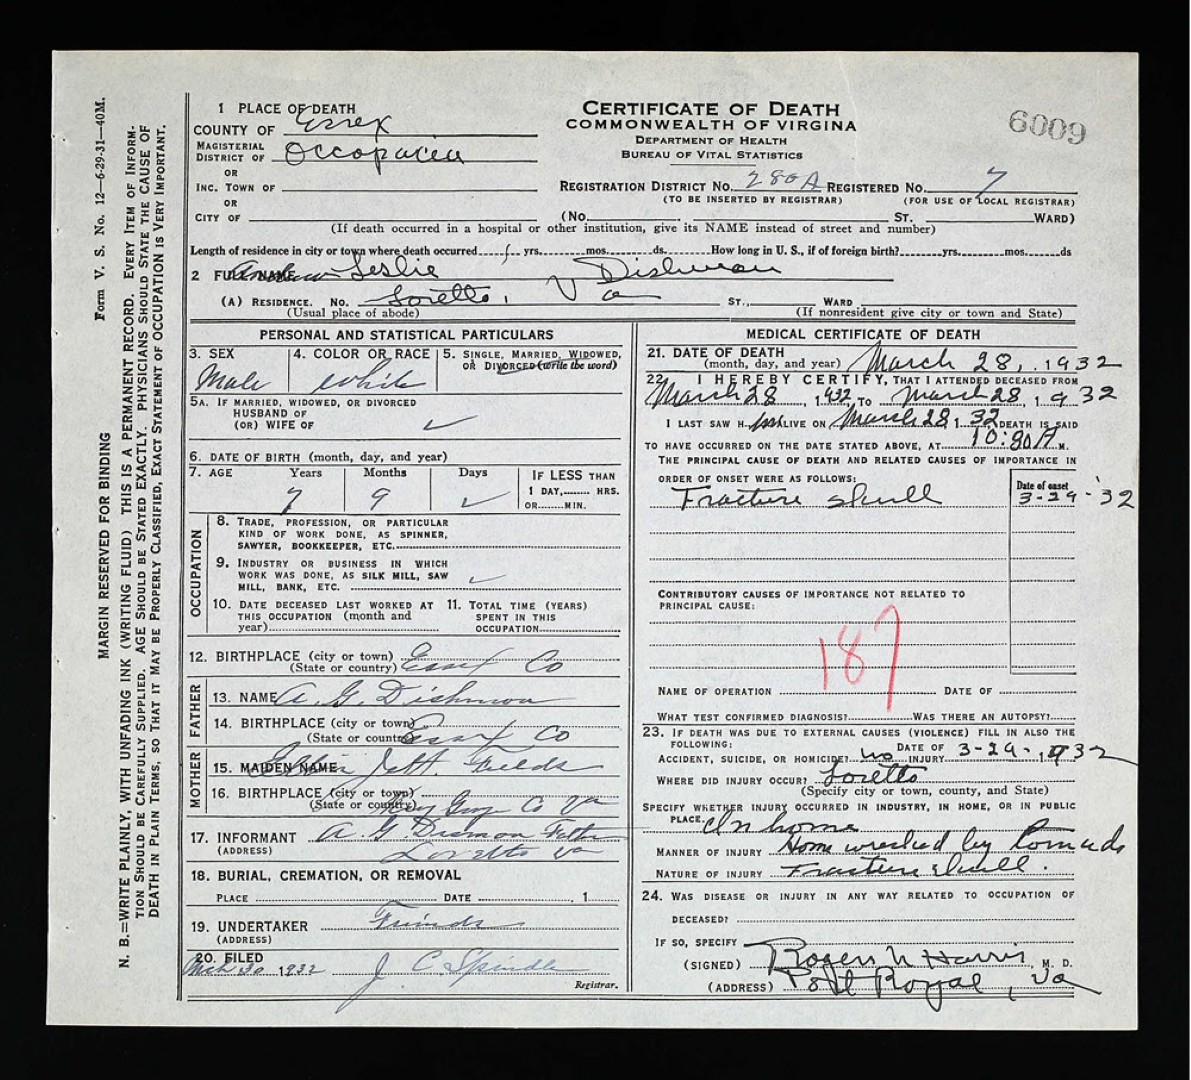 1 PLACE OF DEATH
COUNTY OF Essex
MAGISTERIAL DISTRICT OF Occopacia
OR
INC. TOWN OF
OR
CITY OF
CERTIFICATE OF DEATH
COMMONWEALTH OF VIRGINIA
DEPARTMENT OF HEALTH
BUREAU OF VITAL STATISTICS
6009
REGISTRATION DISTRICT NO. 280A REGISTERED NO. 7
(TO BE INSERTED BY REGISTRAR) (FOR USE OF LOCAL REGISTRAR)
(No. ST. WARD)
(If death occurred in a hospital or other institution, give its NAME instead of street and number)
Length of residence in city or town where death occurred yrs. mos. ds. How long in U. S., if of foreign birth? yrs. mos. ds
2 FULL NAME Leslie Dishman
(A) RESIDENCE. No. Loretto, Va ST., WARD
(Usual place of abode) (If nonresident give city or town and State)
PERSONAL AND STATISTICAL PARTICULARS
3. SEX
Male
4. COLOR OR RACE
White
5. SINGLE, MARRIED, WIDOWED, OR DIVORCED (write the word)
5A. IF MARRIED, WIDOWED, OR DIVORCED
HUSBAND OF
(OR) WIFE OF
6. DATE OF BIRTH (month, day, and year)
7. AGE Years Months Days IF LESS THAN
1 DAY, HRS.
OR MIN.
7 9
OCCUPATION
8. TRADE, PROFESSION, OR PARTICULAR
KIND OF WORK DONE, AS SPINNER,
SAWYER, BOOKKEEPER, ETC.
9. INDUSTRY OR BUSINESS IN WHICH
WORK WAS DONE, AS SILK MILL, SAW
MILL, BANK, ETC.
10. DATE DECEASED LAST WORKED AT
THIS OCCUPATION (month and
year)
11. TOTAL TIME (YEARS)
SPENT IN THIS
OCCUPATION
12. BIRTHPLACE (city or town) Essex Co
(State or country)
FATHER
13. NAME A. G. Dishman
14. BIRTHPLACE (city or town) Essex Co
(State or country)
MOTHER
15. MAIDEN NAME Fields
16. BIRTHPLACE (city or town)
(State or country) King Geo Co Va
17. INFORMANT A. G. Dismon Father
(ADDRESS) Loretto Va
18. BURIAL, CREMATION, OR REMOVAL
PLACE DATE , 1
19. UNDERTAKER Friends
(ADDRESS)
20. FILED
Mch 30 1932 J. C. Spindle
Registrar.
MEDICAL CERTIFICATE OF DEATH
21. DATE OF DEATH
(month, day, and year) March 28, 1932
22. I HEREBY CERTIFY, THAT I ATTENDED DECEASED FROM
March 28, 1932, TO March 28, 1932
I LAST SAW H LIVE ON March 28 1 32 DEATH IS SAID
TO HAVE OCCURRED ON THE DATE STATED ABOVE, AT 10:30 A M.
THE PRINCIPAL CAUSE OF DEATH AND RELATED CAUSES OF IMPORTANCE IN
ORDER OF ONSET WERE AS FOLLOWS:
Date of onset
Fracture skull 3-29-'32
CONTRIBUTORY CAUSES OF IMPORTANCE NOT RELATED TO
PRINCIPAL CAUSE:
187
NAME OF OPERATION DATE OF
WHAT TEST CONFIRMED DIAGNOSIS? WAS THERE AN AUTOPSY?
23. IF DEATH WAS DUE TO EXTERNAL CAUSES (VIOLENCE) FILL IN ALSO THE
FOLLOWING:
ACCIDENT, SUICIDE, OR HOMICIDE? no DATE OF INJURY 3-29-, 1932
WHERE DID INJURY OCCUR? Loretto
(Specify city or town, county, and State)
SPECIFY WHETHER INJURY OCCURRED IN INDUSTRY, IN HOME, OR IN PUBLIC
PLACE. In home
MANNER OF INJURY Home wrecked by Tornado
NATURE OF INJURY Fracture skull.
24. WAS DISEASE OR INJURY IN ANY WAY RELATED TO OCCUPATION OF
DECEASED?
IF SO, SPECIFY
(SIGNED) Rogers N Harris, M. D.
(ADDRESS) Port Royal, Va
Form V. S. No. 12—6-29-31—40M.
MARGIN RESERVED FOR BINDING
N. B.—WRITE PLAINLY, WITH UNFADING INK (WRITING FLUID) THIS IS A PERMANENT RECORD. EVERY ITEM OF INFORM-
TION SHOULD BE CAREFULLY SUPPLIED. AGE SHOULD BE STATED EXACTLY. PHYSICIANS SHOULD STATE THE CAUSE OF
DEATH IN PLAIN TERMS, SO THAT IT MAY BE PROPERLY CLASSIFIED. EXACT STATEMENT OF OCCUPATION IS VERY IMPORTANT.